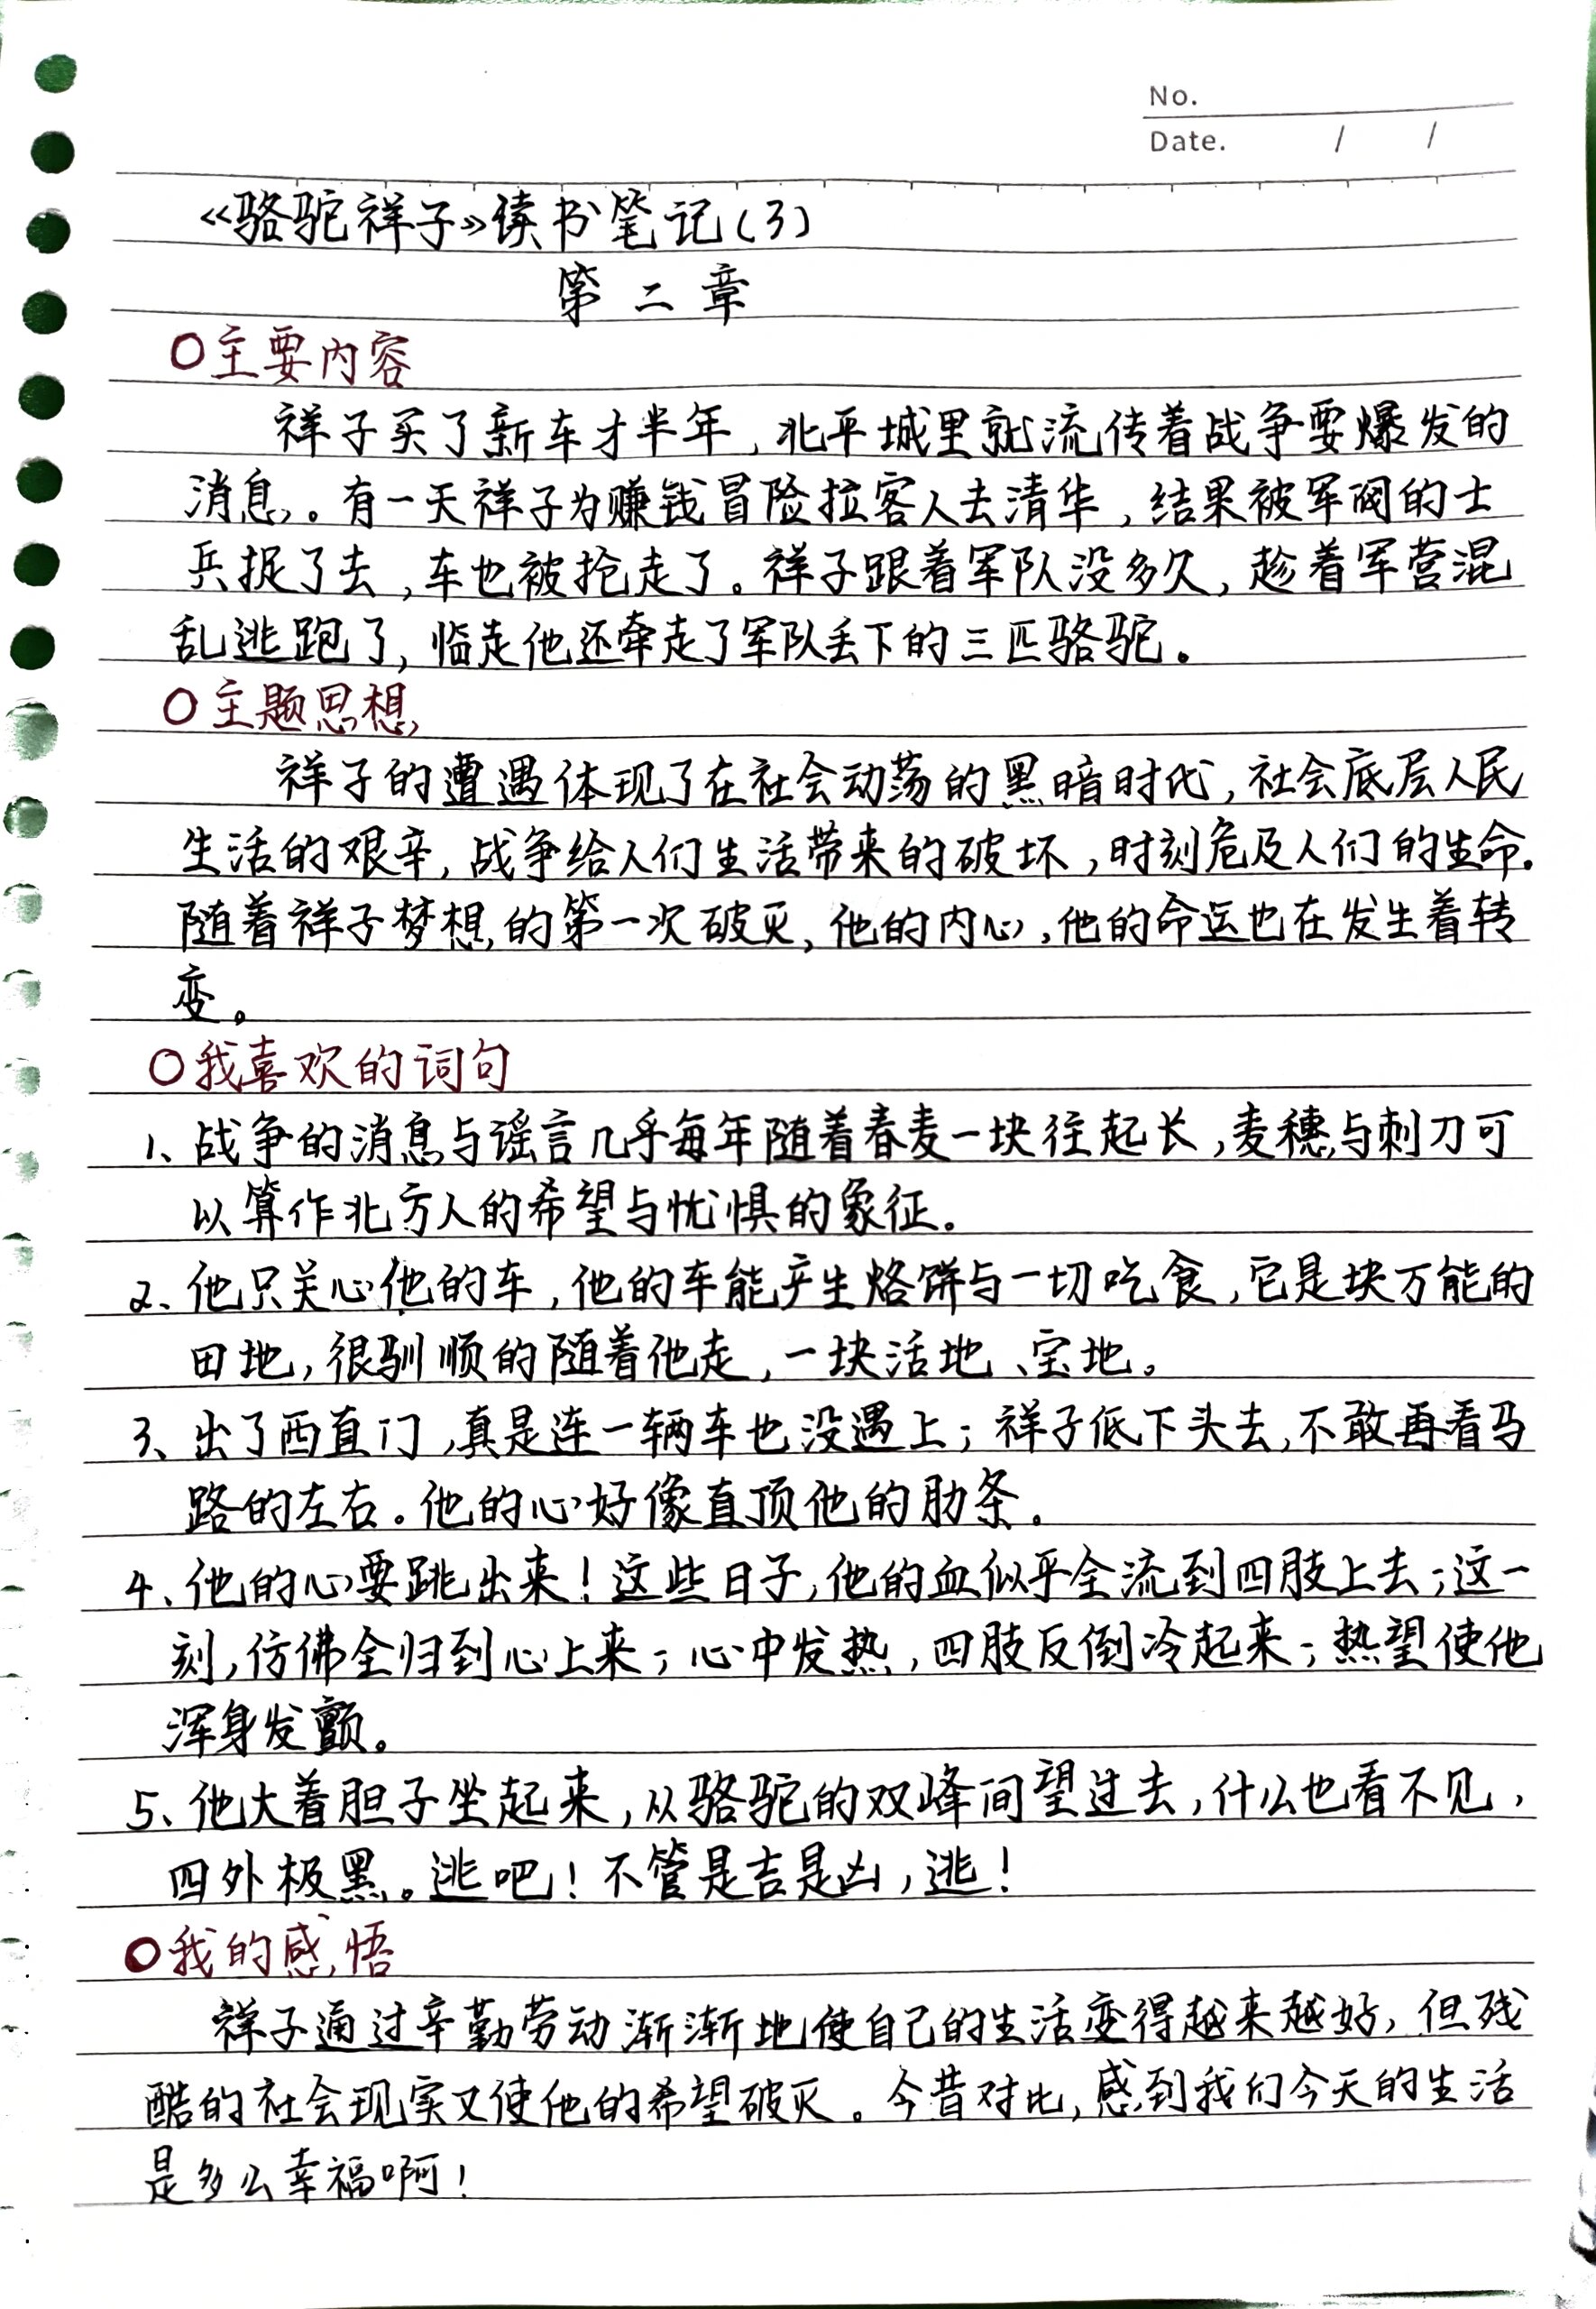 No.
Date. / /
《骆驼祥子》读书笔记(3)
第二章
○主要内容
祥子买了新车才半年,北平城里就流传着战争要爆发的
消息。有一天祥子为赚钱冒险拉客人去清华,结果被军阀的士
兵捉了去,车也被抢走了。祥子跟着军队没多久,趁着军营混
乱逃跑了,临走他还牵走了军队丢下的三匹骆驼。
○主题思想
祥子的遭遇体现了在社会动荡的黑暗时代,社会底层人民
生活的艰辛,战争给人们生活带来的破坏,时刻危及人们的生命.
随着祥子梦想的第一次破灭,他的内心,他的命运也在发生着转
变。
○我喜欢的词句
1、战争的消息与谣言几乎每年随着春麦一块往起长,麦穗与刺刀可
以算作北方人的希望与忧惧的象征。
2、他只关心他的车,他的车能产生烙饼与一切吃食,它是块万能的
田地,很驯顺的随着他走,一块活地、宝地。
3、出了西直门,真是连一辆车也没遇上;祥子低下头去,不敢再看马
路的左右。他的心好像直顶他的肋条。
4、他的心要跳出来!这些日子,他的血似乎全流到四肢上去;这一
刻,仿佛全归到心上来;心中发热,四肢反倒冷起来;热望使他
浑身发颤。
5、他大着胆子坐起来,从骆驼的双峰间望过去,什么也看不见,
四外极黑。逃吧!不管是吉是凶,逃!
○我的感悟
祥子通过辛勤劳动渐渐地使自己的生活变得越来越好,但残
酷的社会现实又使他的希望破灭。今昔对比,感到我们今天的生活
是多么幸福啊!